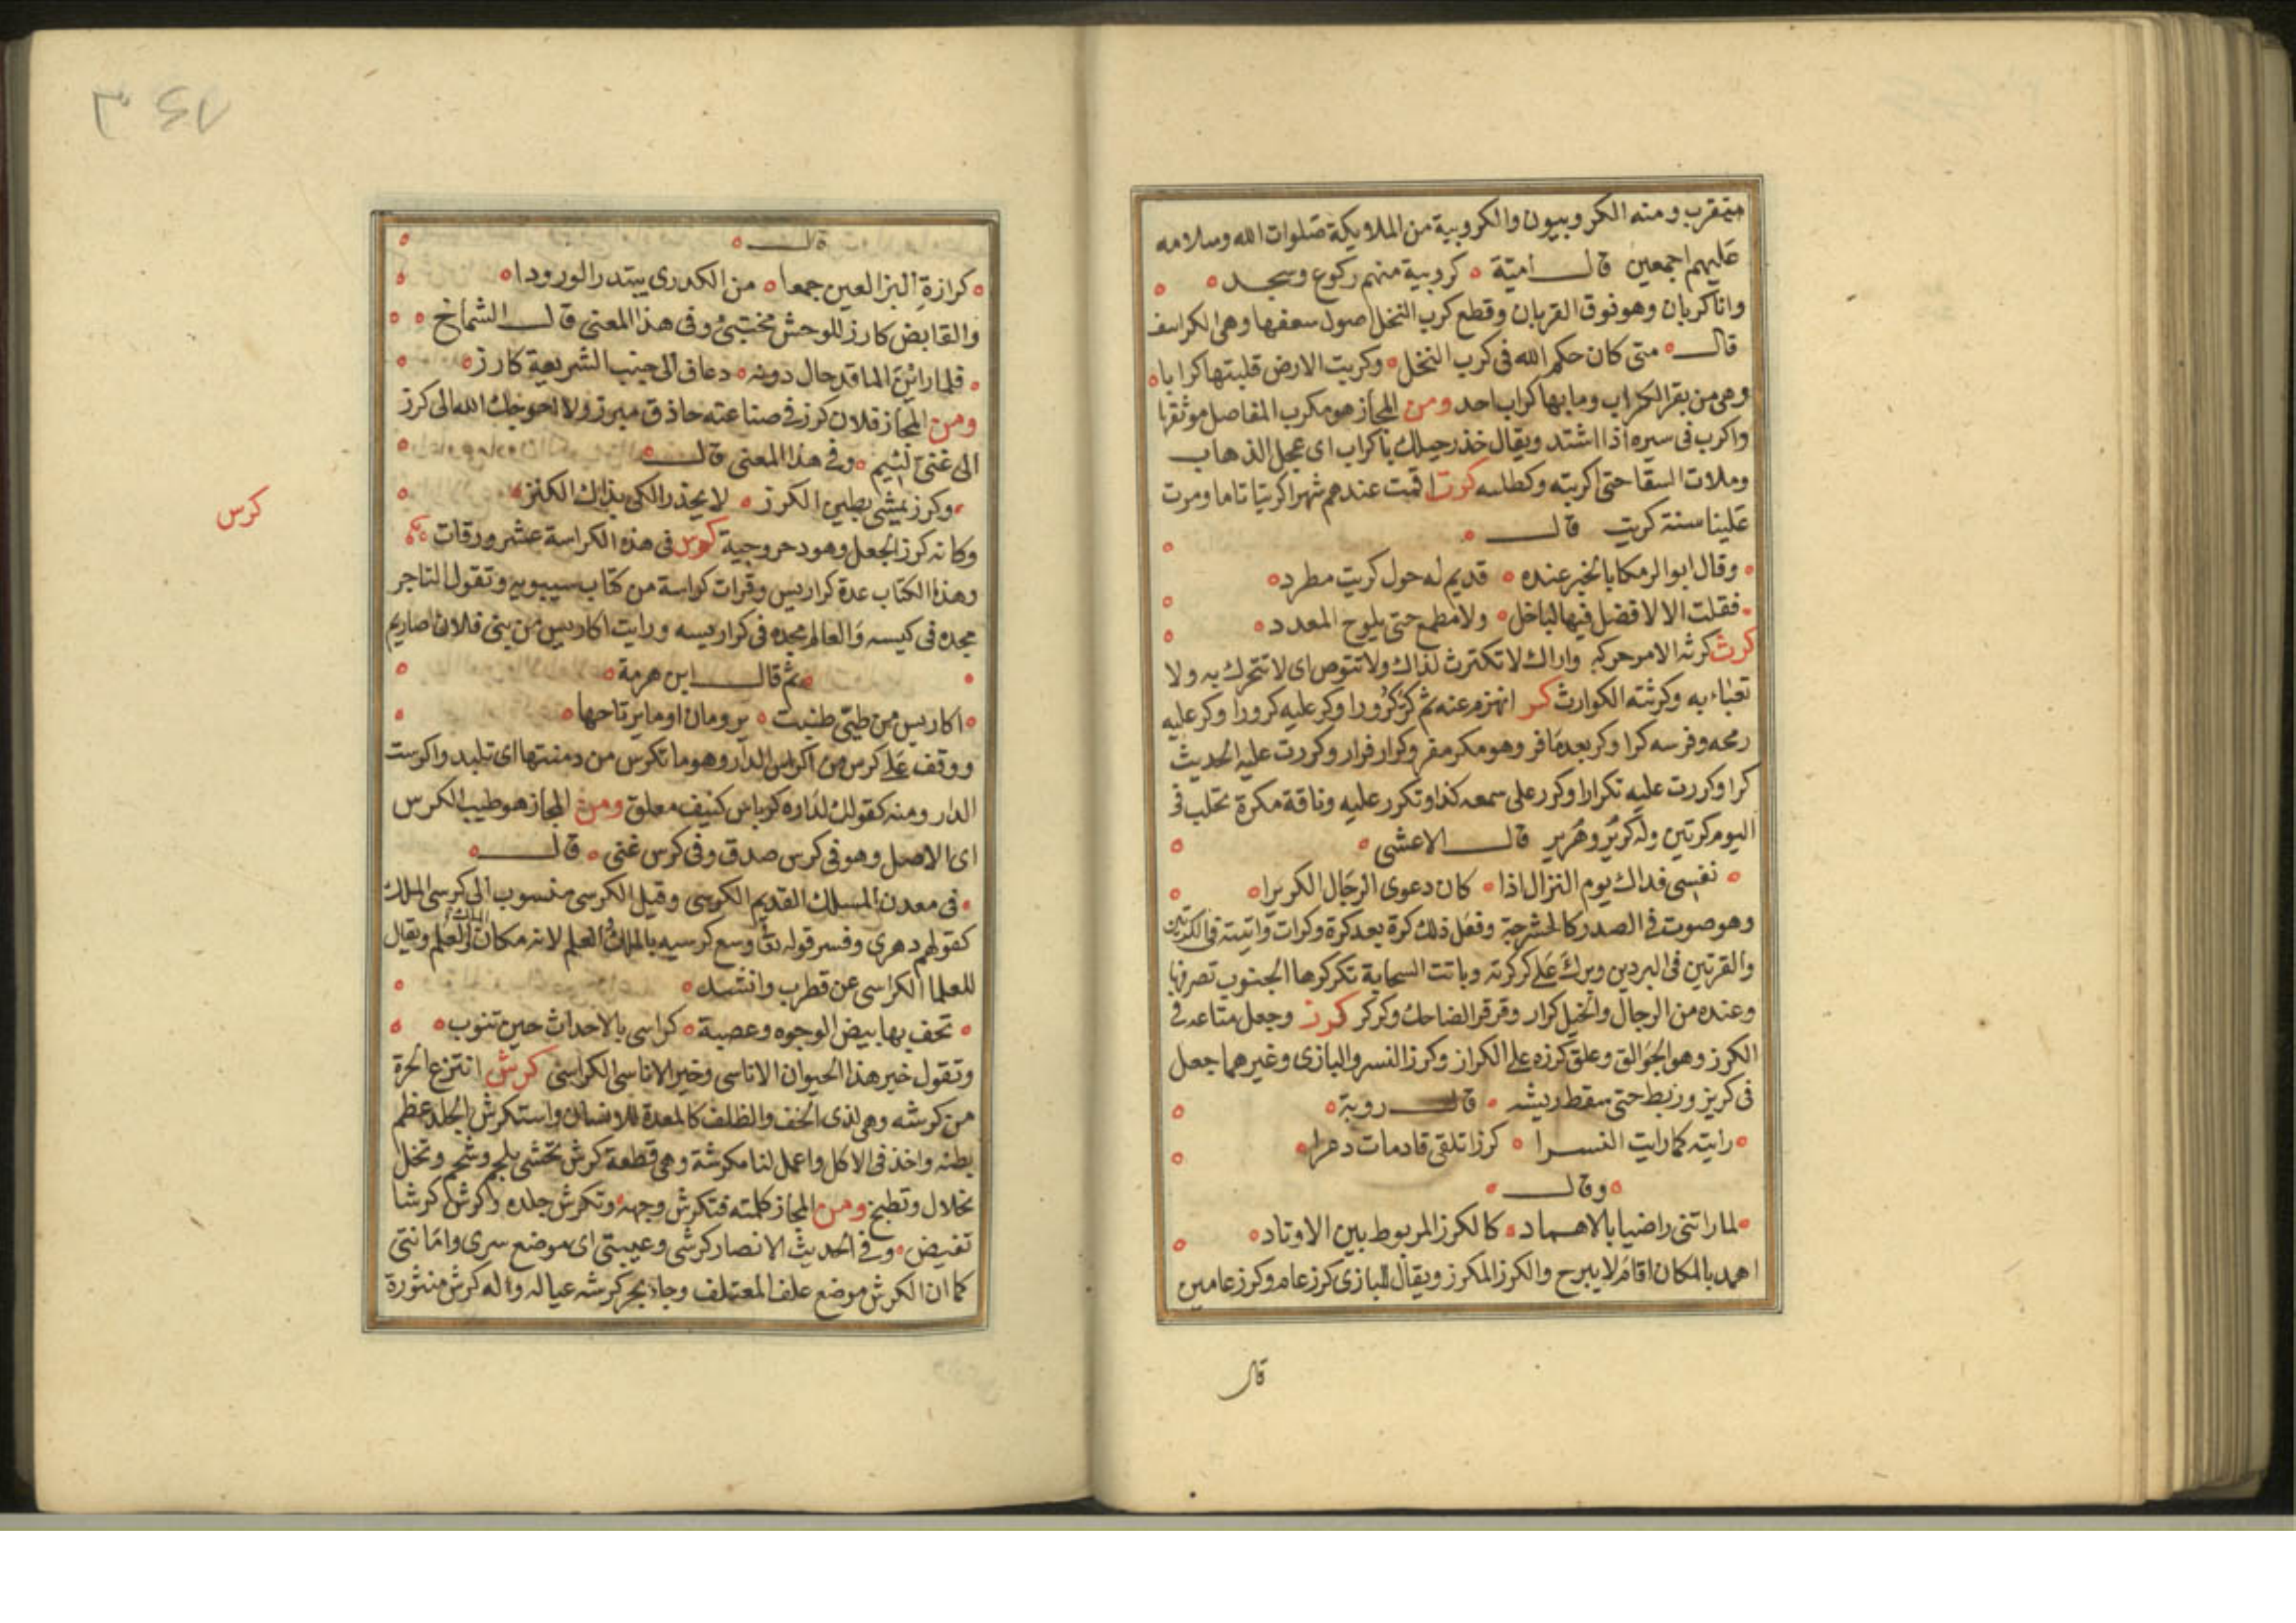 متقرب ومنه الكروبيون والكروبية من الملايكة صلوات الله وسلامه
عليهم اجمعين قال امية كروبية منهم ركوع وسجد
واناكربان وهو فوق القربان وقطع كرب النخل اصول سعفها وهي الكرانيف
قال متى كان حكم الله فى كرب النخل وكربت الارض قلبتها كرابا
وهي من بقر الكراب وما بها كراب احد ومن المجاز هو مكرب المفاصل موثقها
واكرب فى سيره اذا اشتد ويقال خذ رجيلك باكراب اى عجل الذهاب
وملات السقا حتى اكربته وكطلسه كرت اقمت عندهم شهرا كريتا تاما ومرت
علينا سنة كريت قال
وقال ابو الرمكا بالخبر عنده قديم له حول كريت مطرد
فقلت الا لا فضل فيها لباخل ولا مطمع حتى يلوح المعدد
كرث كرثه الامر حركه واراك لا تكترث لذاك ولا تنوص اى لا تتحرك به ولا
تعباء به وكرثته الكوارث كر انهزم عنه ثم كر كرورا وكر عليه كرورا وكر عليه
رمحه وفرسه كرا وكر بعد ما فر وهو مكر مفر وكرار فرار وكررت عليه الحديث
كرا وكررت عليه تكرارا وكرر على سمعه كذا وتكرر عليه وناقة مكرة تحلب فى
اليوم كرتين وله كرير وهرير قال الاعشى
نفسى فداك يوم النزال اذا كان دعوى الرجال الكريرا
وهو صوت فى الصدر كالحشرجة وفعل ذلك كرة بعد كرة وكرات واتيته فى الكرتين
والقرتين فى البردين وبرك على كركرته وباتت السحابة تكركرها الجنوب تصرفها
وعنده من الرجال والخيل كرار وقرقر الضاحك وكركر كرز وجعل متاعه فى
الكرز وهو الجوالق وعلق كرزه على الكراز وكرز النسر والبازى وغيرهما جعل
فى كريز وربط حتى سقط ريشه قال روبة
رايته كما رايت النسرا كرزا تلقى قادمات دهرا
وقال
لما راتنى راضيا بالاهماد كالكرز المربوط بين الاوتاد
اهمد بالمكان اقام لا يبرح والكرز المكرز ويقال للبازى كرز عام وكرز عامين
قال
قال
كرازة البز العين جمعا من الكدرى يبتدر الورودا
والقابض كارز للوحش مختبئ وفى هذا المعنى قال الشماخ
فلما راين الما قد حال دونه دعاف الى جنب الشريعة كارز
ومن المجاز فلان كرز فى صناعته حاذق مبرز ولا احوجك الله الى كرز
الى غنى لئيم وفى هذا المعنى قال
وكرز يمشى بطين الكرز لا يحذر الكى بذاك الكنز
وكانه كرز الجعل وهو دحروجية كرس فى هذه الكراسة عشر ورقات
كرس
وهذا الكتاب عدة كراريس وقرات كراسة من كتاب سيبويه وتقول التاجر
مجده فى كيسه والعالم مجده فى كراريسه ورايت اكاريس من بنى فلان اصاريم
ثم قال ابن هرمة
اكاريس من طيى طنبت يرومان او ما يرتاحها
ووقف على كرس من اكراس الدار وهو ما تكرس من دمنتها اى تلبد واكرست
الدار ومنه كقولك لداره كرباس كنيف معلق ومن المجاز هو طيب الكرس
اى الاصل وهو فى كرس صدق وفى كرس غنى قال
فى معدن المسلك القديم الكرسى وقيل الكرسى منسوب الى كرسى الملك
كقولهم دهرى وفسر قوله تعا وسع كرسيه بالملك والعلم لانه مكان الملك العلم ويقال
للعلما الكراسى عن قطرب وانشد
تحف بها بيض الوجوه وعصبة كراسى بالاحداث حين تنوب
وتقول خير هذا الحيوان الاناسى وخير الاناسى الكراسى كرش انتزع الجرة
من كرشه وهى لذى الخف والظلف كالمعدة للانسان واستكرش الجلد عظم
بطنه واخذ فى الاكل واعمل لنا مكرشة وهى قطعة كرش تحشى بلحم وشحم وتخل
بخلال وتطبخ ومن المجاز كلمته فتكرش وجهه وتكرش جلده واكرش كرشا
تغيض وفى الحديث الانصار كرشى وعيبتى اى موضع سرى وامانتى
كما ان الكرش موضع علف المعتلف وجاء يجر كرشه عياله وله كرش منثورة